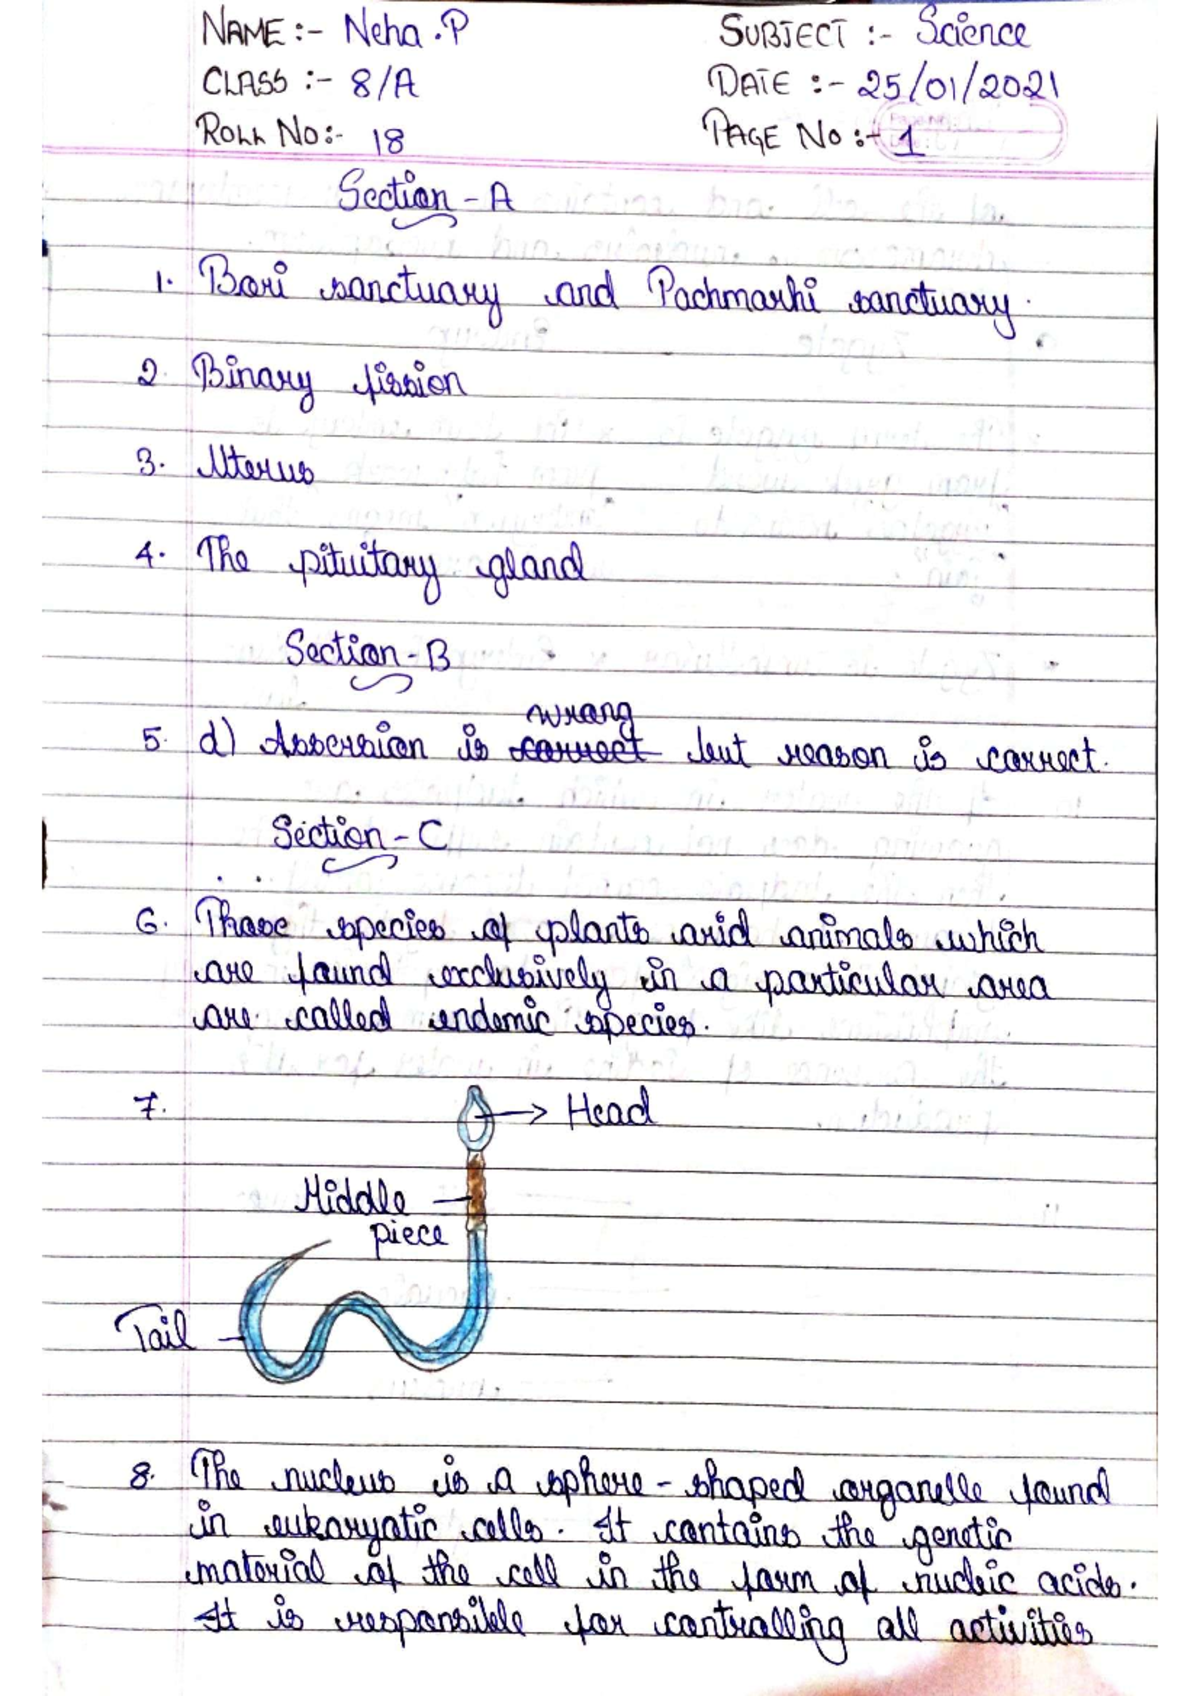 NAME :- Neha .P
SUBJECT :- Science
CLASS :- 8/A
DATE :- 25/01/2021
ROLL NO :- 18
PAGE NO :- 1
Section - A
1. Bori sanctuary and Pachmarhi sanctuary.
2. Binary fission
3. Uterus
4. The pituitary gland
Section - B
wrong
5. d) Assersion is correct but reason is correct.
Section - C
6. Those species of plants and animals which
are found exclusively in a particular area
are called endemic species.
7.
Head
Middle
piece
Tail
8. The nucleus is a sphere - shaped organelle found
in eukaryotic cells. It contains the genetic
material of the cell in the form of nucleic acids.
It is responsible for controlling all activities